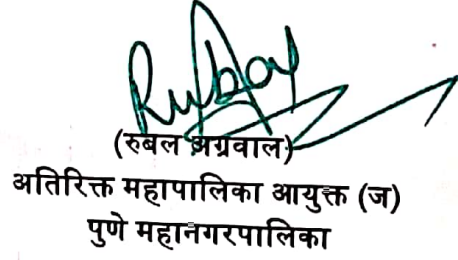 (रुबल अग्रवाल)
अतिरिक्त महापालिका आयुक्त (ज)
पुणे महानगरपालिका